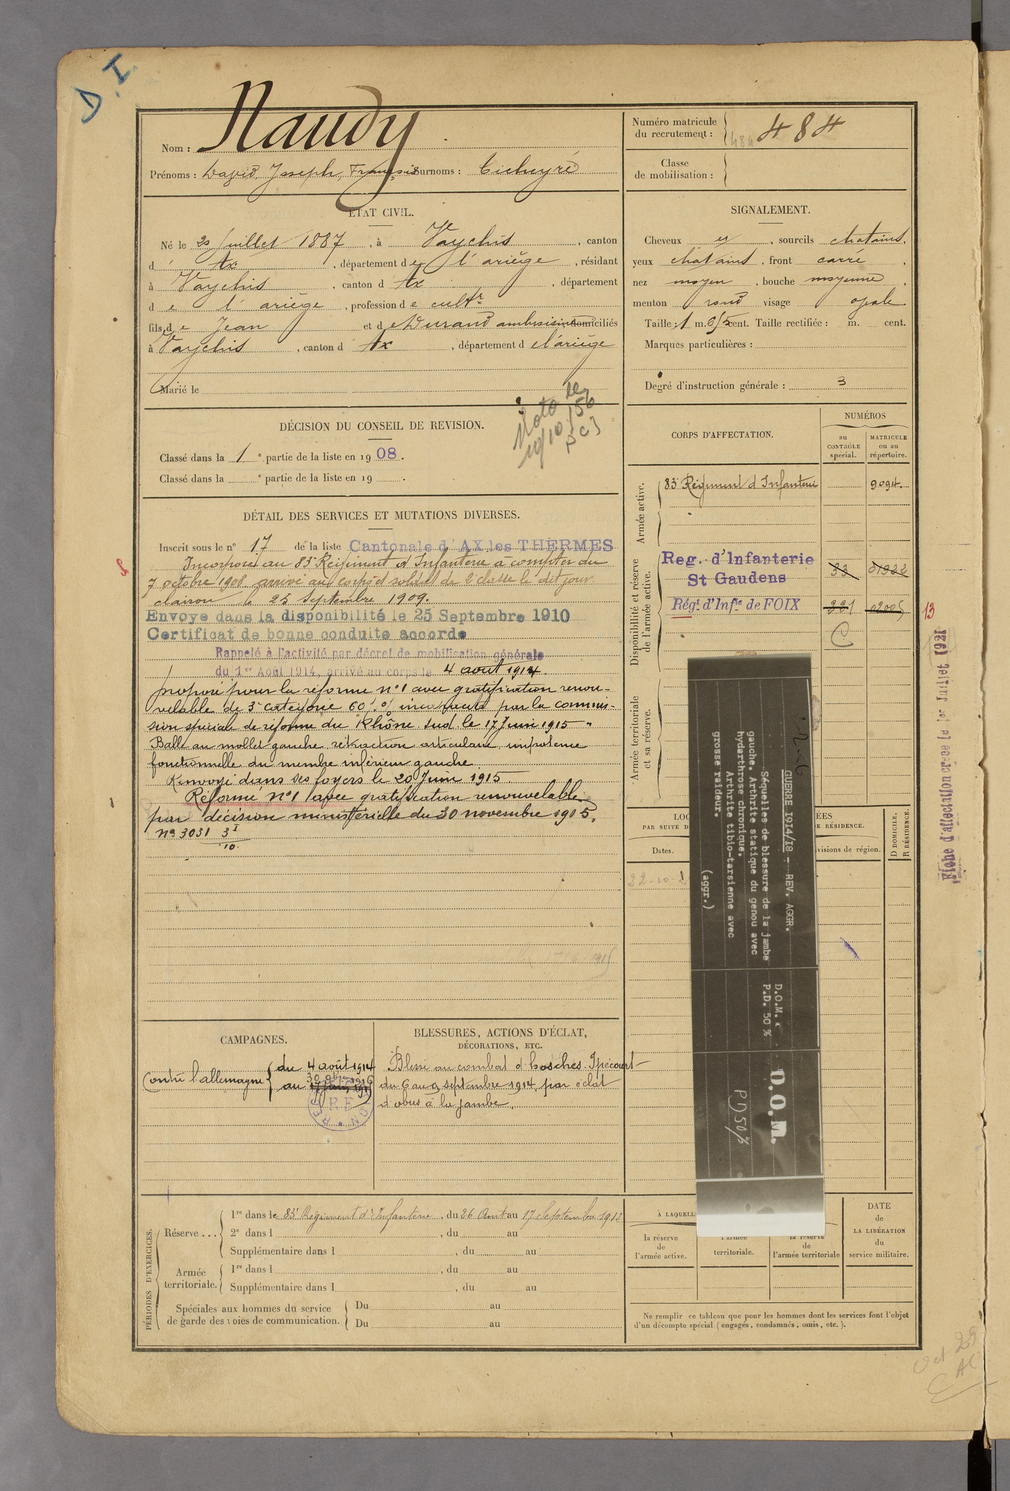 D.I.
Nom : Naudy
Prénoms : David, Joseph, François Surnoms :
Numéro matricule
du recrutement : 484
484
Classe
de mobilisation :
ÉTAT CIVIL.
Né le juillet 1887, à Vaychis, canton
d' Ax, département de l'ariège, résidant
à Vaychis, canton d'Ax, département
de l'ariège, profession de cultr
fils de Jean et de Durand domiciliés
à Vaychis, canton d'Ax, département de l'ariège
Marié le
SIGNALEMENT.
Cheveux et, sourcils chatains,
yeux chatains, front carré,
nez moyen, bouche moyenne,
menton rond visage ovale
Taille : 1 m. cent. Taille rectifiée : m. cent.
Marques particulières :
Degré d'instruction générale : 3
DÉCISION DU CONSEIL DE REVISION.
Classé dans la 1e partie de la liste en 1908.
Classé dans la e partie de la liste en 19 .
19/10/56
CORPS D'AFFECTATION.
NUMÉROS
au
CONTRÔLE
spécial.
MATRICULE
ou au
répertoire.
Armée active.
83e Régiment d'Infanterie 9094.
Disponibilité et réserve
de l'armée active.
Reg. d'Infanterie
St Gaudens
Régt. d'Infie de FOIX
C
13
Armée territoriale
et sa réserve.
Fiche d'affectation créée le 1er Juillet 1921
DÉTAIL DES SERVICES ET MUTATIONS DIVERSES.
Inscrit sous le n° 17 de la liste Cantonale d'AX les THERMES
Incorporé au 83e Régiment d'Infanterie à compter du
7 octobre 1908 arrivé au corps et soldat de 2e classe le dit jour.
clairon le 25 septembre 1909.
Envoyé dans la disponibilité le 25 Septembre 1910
Certificat de bonne conduite accordé
Rappelé à l'activité par décret de mobilisation générale
du 1er Août 1914, arrivé au corps le 4 août 1914.
proposé pour la réforme n°1 avec gratification renou-
velable de 3e catégorie 60 % par la commis-
sion spéciale de réforme du Rhône Sud le 17 Juin 1915 "
Balle au mollet gauche, rétraction articulaire, impotence
fonctionnelle du membre inférieur gauche.
Renvoyé dans ses foyers le 20 Juin 1915.
Réformé n°1 avec gratification renouvelable
par décision ministérielle du 30 novembre 1915.
N° 3031 3I
10
GUERRE 1914/18 - REV. AGGR.
Séquelles de blessure de la jambe
gauche. Arthrite statique du genou avec
hydarthrose chronique.
Arthrite tibio-tarsienne avec
grosse raideur.
(aggr.)
D.O.M.
P.D. 50 %
D.O.M.
PD 50 %
PAR SUITE D
DE RÉSIDENCE.
Dates.
divisions de région.
D DOMICILE,
R RÉSIDENCE.
CAMPAGNES.
Contre l'allemagne { du 4 août 1914
au
BLESSURES, ACTIONS D'ÉCLAT,
DÉCORATIONS, ETC.
Blessé au combat d'hosches-Ippécourt
du 6 au 9 septembre 1914, par éclat
d'obus à la jambe.
PÉRIODES D'EXERCICES.
Réserve ... { 1re dans le 83e Régiment d'Infanterie, du 26 Aout au 17 Septembre 1913
2e dans l , du au
Supplémentaire dans l , du au
Armée
territoriale. { 1re dans l , du au
Supplémentaire dans l , du au
Spéciales aux hommes du service
de garde des voies de communication. { Du au
Du au
À LAQUELL
la réserve
de
l'armée active.
l'armée
territoriale.
la réserve
de
l'armée territoriale
DATE
de
LA LIBÉRATION
du
service militaire.
Ne remplir ce tableau que pour les hommes dont les services font l'objet
d'un décompte spécial (engagés, condamnés, omis, etc.).